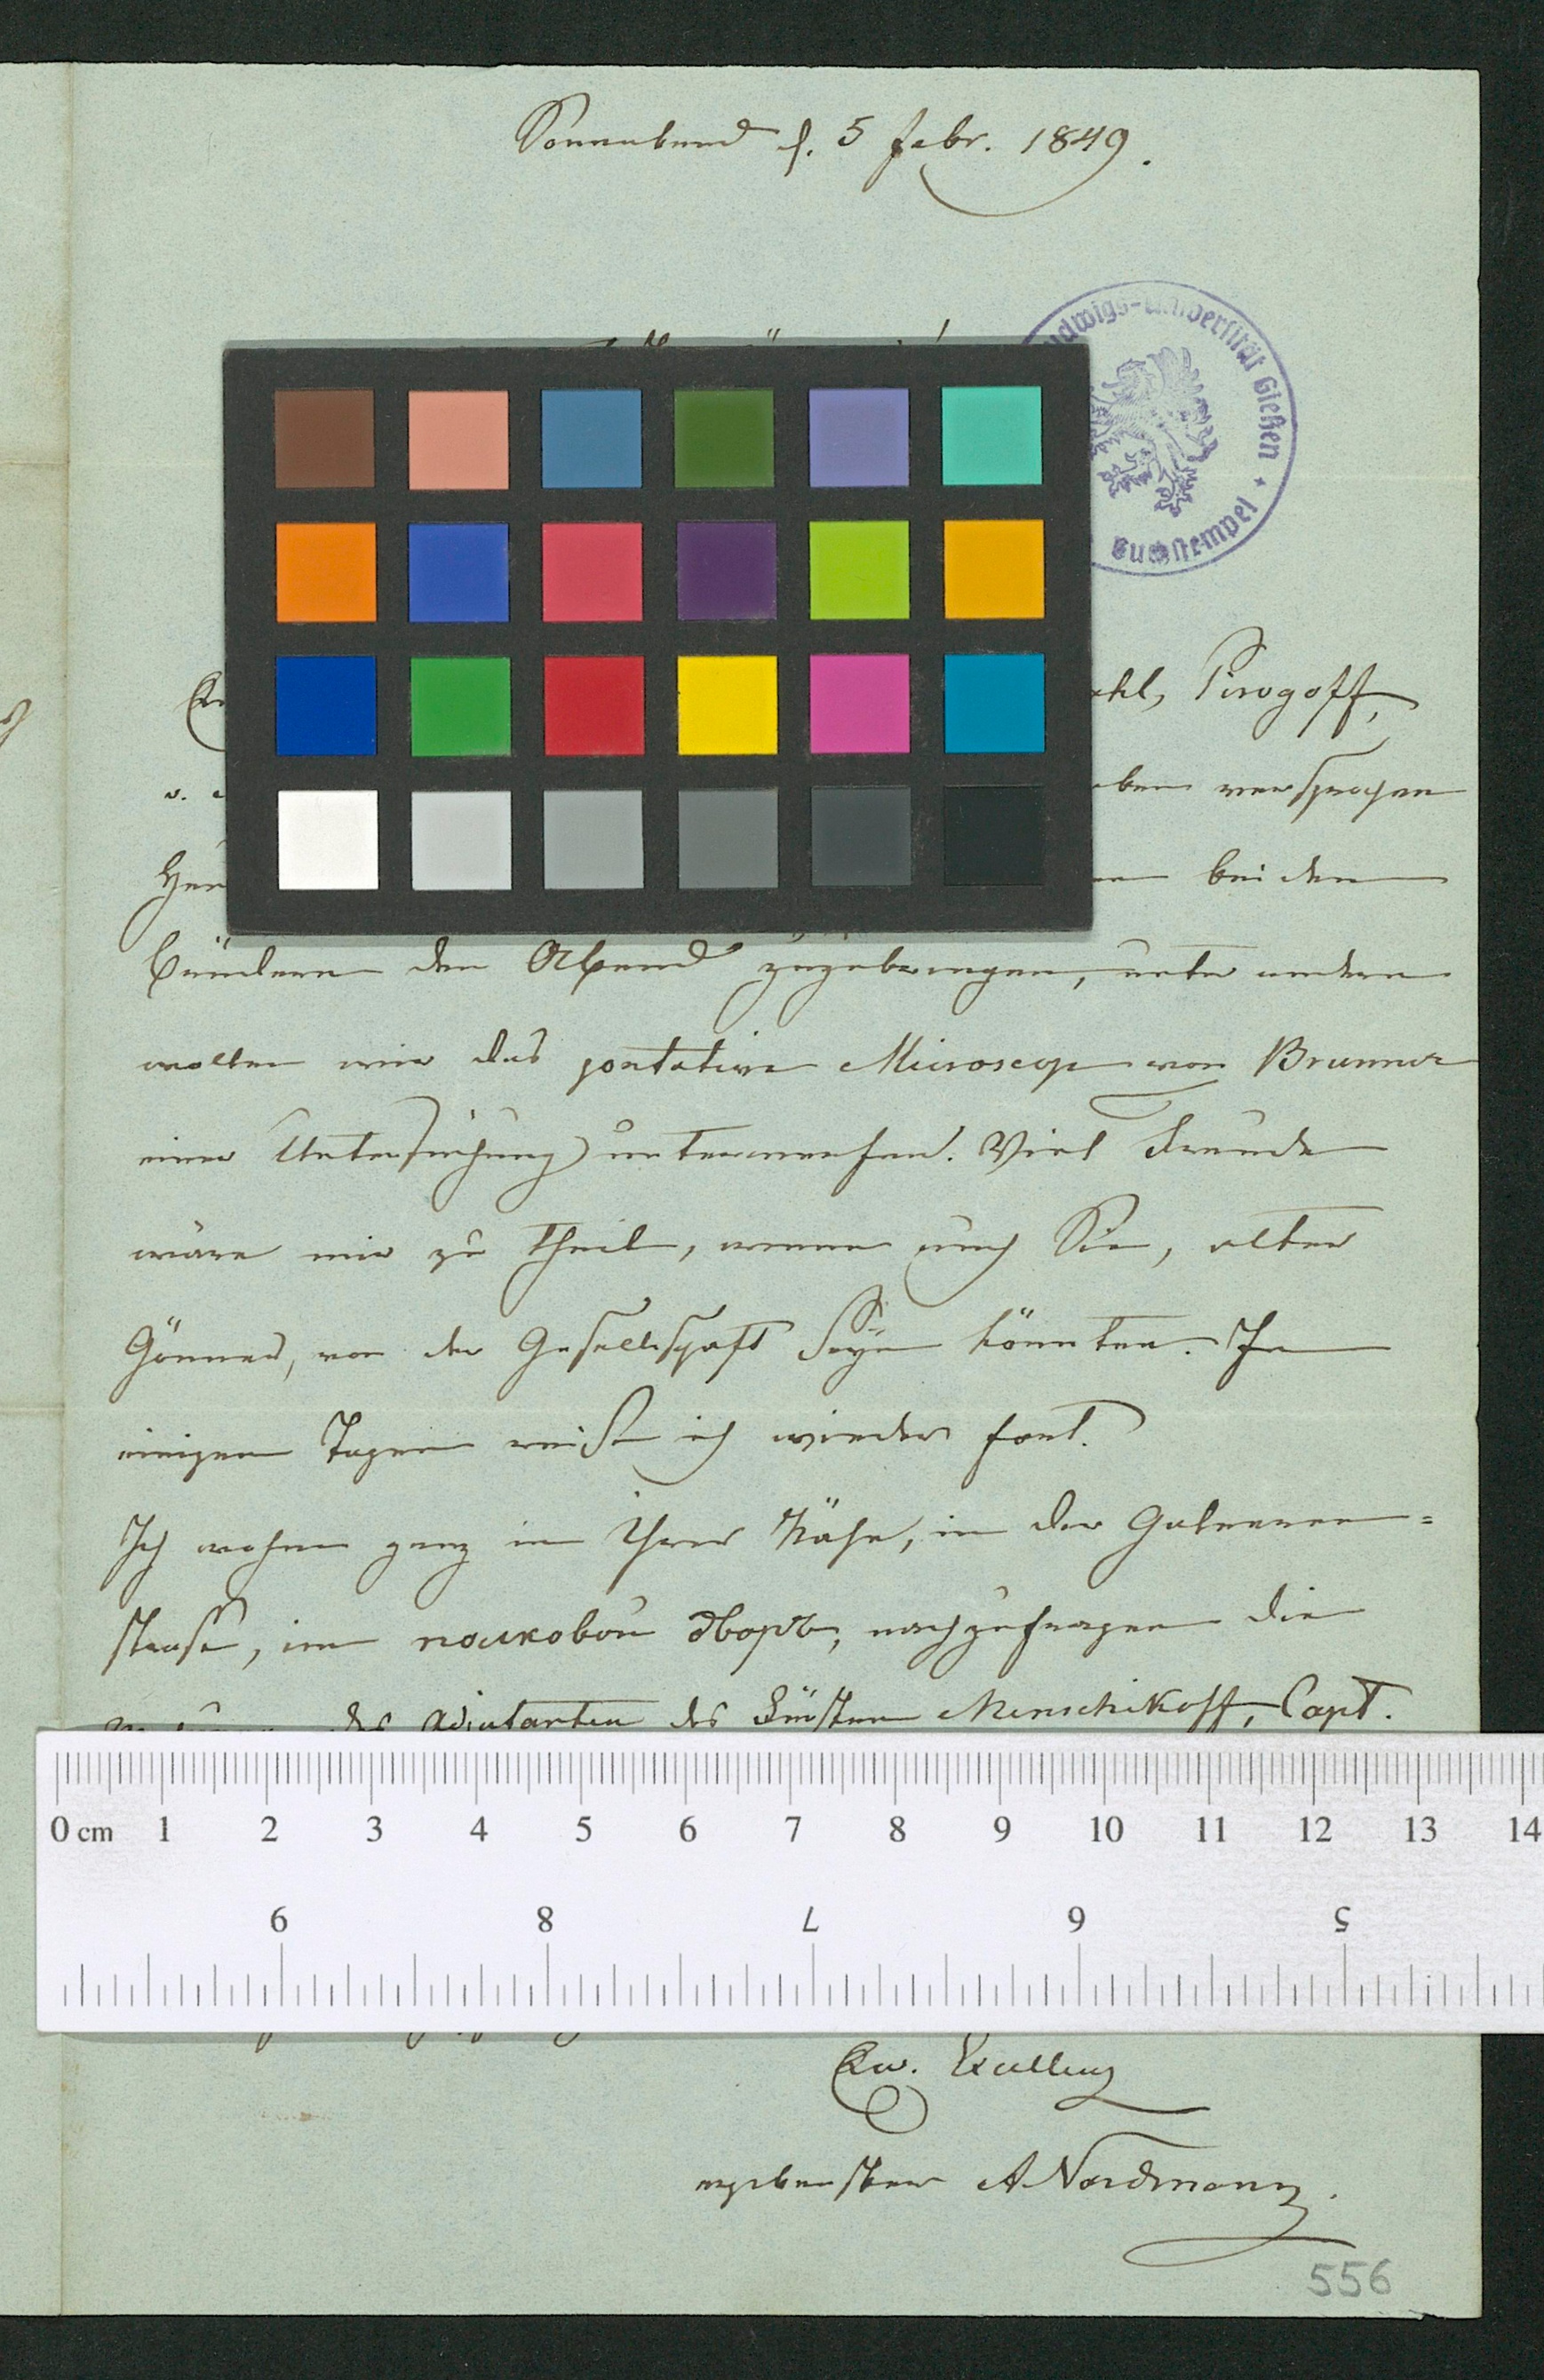 Sonnabend d. 5 Febr. 1849.
Ludwigs-Universität Gießen
Buchstempel
Dahl, Pirogoff,
haben versprochen
bei dem
den Abend zuzubringen, unter andern
wollen wir das portative Microscop von Brunner
einer Untersuchung unterwerfen. Viel Freude
wäre mir zu Theil, wenn auch Sie, alter
Gönner, von der Gesellschaft seyn könnten. In
einigen Tagen reise ich wieder fort.
Ich wohne ganz in Ihrer Nähe, in der Galeeren=
strase, im полковои дворѣ, nachzufragen die
des Adjutanten des Fürsten Menschikoff, Capt.
0 cm 1 2 3 4 5 6 7 8 9 10 11 12 13 14
9 8 7 6 5
Ew. Excellenz
ergebenster A Nordmann.
556